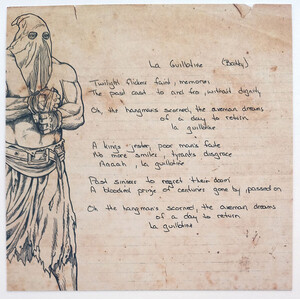 La Guillotine (Baddy)
Twilight flickers faint memories
The past cast to and fro, without dignity
Oh, the hangman's scorned, the axeman dreams
of a day to return
la guillotine
A kings jester, poor man's fate
No more smiles, tyrants disgrace
Aaaah, la guillotine
Past sinners to regret their doom
A bloodied prince of centuries gone by, passed on
Oh the hangman's scorned, the axeman dreams
of a day to return
la guillotine